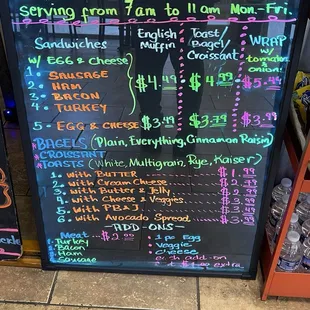 Serving from 7am to 11am Mon-Fri.
Sandwiches English Muffin Toast/ Bagel/ Croissant WRAP w/ tomato & onion!
W/ EGG & Cheese
1 - SAUSAGE
2 - HAM
3 - BACON
4 - TURKEY
$4.49 $4.99 $5.49
5 - EGG & CHEESE $3.49 $3.79
BAGELS (Plain, Everything, Cinnamon Raisin)
CROISSANT
TOASTS (White, Multigrain, Rye, Kaiser)
1. With BUTTER $1.99
2. With Cream Cheese
3. With Butter & Jelly
4. With Cheese & Veggies
5. With PB & J $3.49
6. With Avocado Spread $3.99
-ADD-ONS-
Meat $2.00
Turkey
Bacon
Ham
Sausage
1 pc Egg
Veggie
Cheese
each add-on
extra